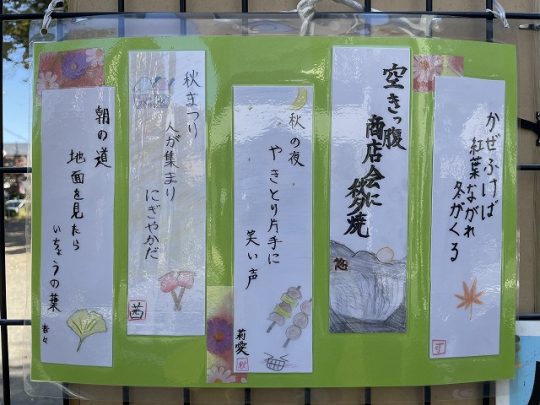 かぜふけば
紅葉ながれ
冬がくる
空きっ腹
商店会に
秋の夜
やきとり片手に
笑い声
莉愛
秋まつり
人が集まり
にぎやかだ
茜
朝の道
地面を見たら
いちょうの葉